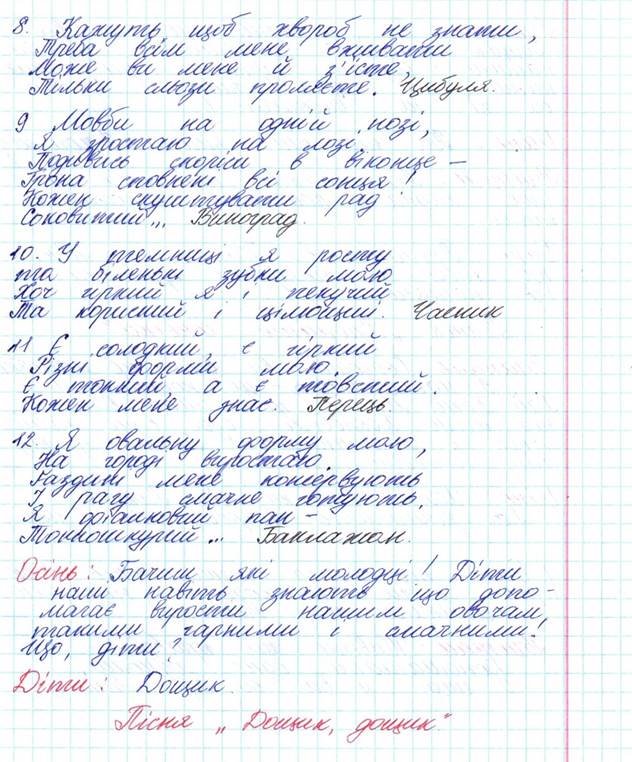 8. Кажуть щоб хвороб не знати,
Треба всім мене вживати
Може ви мене й з'їсте,
Тільки сльози проллєте. Цибуля.
9 Мовби на одній нозі,
Я зростаю на лозі.
Подивись скоріш в віконце –
Грона сповнені всі сонця!
Кожен скуштувати рад
Соковитий... Виноград.
10. У темниці я росту
та біленькі зубки маю
Хоч гіркий я і пекучий
Та корисний і цілющий. Часник
11 Є солодкий, є гіркий
Різні форми маю.
Є тонкий, а є товстий.
Кожен мене знає. Перець
12. Я овальну форму маю,
На городі виростаю.
Газдині мене консервують
І рагу смачне готують.
Я фіалковий пан –
Тонкошкурий... Баклажан.
Осінь: Бачиш які молодці! Діти
наші навіть знають що допо-
магає вирости нашим овочам,
такими гарними і смачними!
Що, діти?
Діти: Дощик.
Пісня „Дощик, дощик"